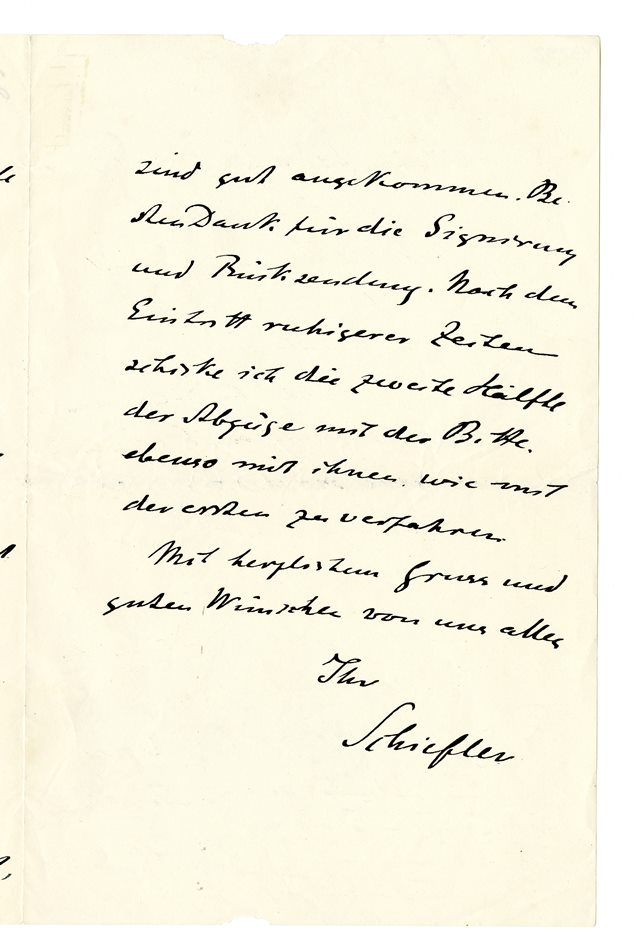 sind gut angekommen. Be-
sten Dank für die Signirung
und Rücksendung. Nach dem
Eintritt ruhigerer Zeiten
schicke ich die zweite Hälfte
der Abzüge mit der Bitte,
ebenso mit ihnen wie mit
der ersten zu verfahren.
Mit herzlichem Gruss und
guten Wünschen von uns allen
Ihr
Schiefler